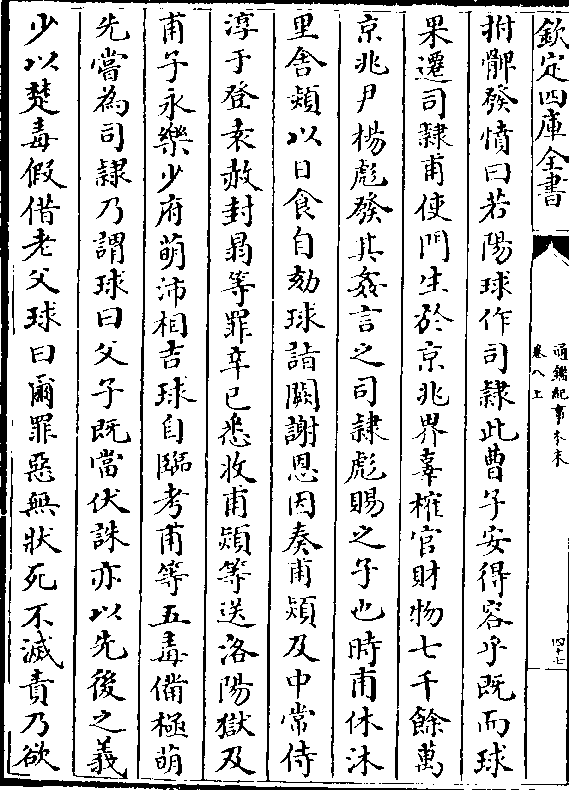 欽定四庫全書
通鑑紀事本末
卷八上
四十七
拊髀發憤曰若陽球作司隸此曹子安得容乎既而球
果遷司隸甫使門生於京兆界辜榷官財物七千餘萬
京兆尹楊彪發其姦言之司隸彪賜之子也時甫休沐
里舍熲以日食自劾球詣闕謝恩因奏甫熲及中常侍
淳于登袁赦封㬱等罪辛巳悉收甫熲等送洛陽獄及
甫子永樂少府萌沛相吉球自臨考甫等五毒備極萌
先嘗為司隸乃謂球曰父子既當伏誅亦以先後之義
少以楚毒假借老父球曰爾罪惡無狀死不滅責乃欲